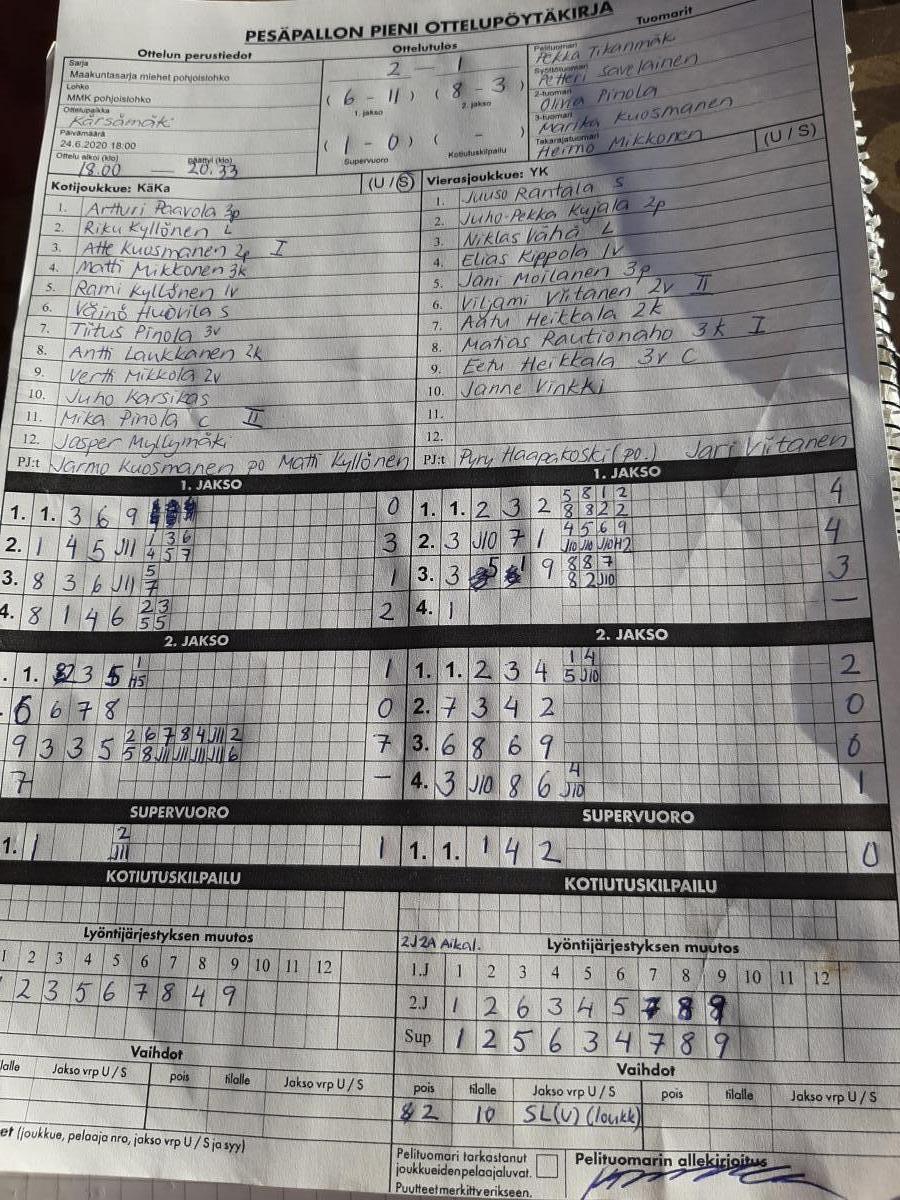 PESÄPALLON PIENI OTTELUPÖYTÄKIRJA
Ottelun perustiedot
Ottelutulos
Tuomarit
Sarja
Maakuntasarja miehet pohjoislohko
Lohko
MMK pohjoislohko
Ottelupaikka
Kärsämäki
Päivämäärä
24.6.2020 18:00
Ottelu alkoi (klo) päättyi (klo)
18.00 — 20.33
2 — 1
( 6 - 11 ) ( 8 - 3 )
1. jakso 2. jakso
( 1 - 0 ) ( - )
Supervuoro Kotiutuskilpailu
Pelituomari
Pekka Tikanmäki
Syöttötuomari
Petteri Savelainen
2-tuomari
Olivia Pinola
3-tuomari
Marika Kuosmanen
Takarajatuomari
Heimo Mikkonen
Kotijoukkue: KäKa (U / S)
1. Artturi Paavola 3p
2. Riku Kyllönen L
3. Atte Kuosmanen 2p I
4. Matti Mikkonen 3k
5. Rami Kyllönen 1v
6. Väinö Huovila S
7. Tiitus Pinola 3v
8. Antti Laukkanen 2k
9. Vertti Mikkola 2v
10. Juho Karsikas
11. Mika Pinola C II
12. Jasper Myllymäki
PJ:t Jarmo Kuosmanen po Matti Kyllönen
Vierasjoukkue: YK (U / S)
1. Juuso Rantala S
2. Juho-Pekka Kujala 2p
3. Niklas Vähä L
4. Elias Kippola 1v
5. Jani Moilanen 3p
6. Viljami Viitanen 2v II
7. Aatu Heikkala 2k
8. Matias Rautionaho 3k I
9. Eetu Heikkala 3v C
10. Janne Vinkki
11.
12.
PJ:t Pyry Haapakoski (po.) Jari Viitanen
1. JAKSO
1. 1. 3 6 9 0
2. 1 4 5 J11 1 3 6 3
4 5 7
3. 8 3 6 J11 5 1
7
4. 8 1 4 6 2 3 2
5 5
1. JAKSO
1. 1. 2 3 2 5 8 1 2 4
8 8 2 2
2. 3 J10 7 1 4 5 6 9 4
J10 J10 J10 H2
3. 3 5 1 9 8 8 7 3
8 2 J10
4. 1 —
2. JAKSO
. 1. 2 3 5 1 1
H5
6 6 7 8 0
9 3 3 5 2 6 7 8 4 J11 2 7
5 8 J11 J11 J11 J11 6
7 —
2. JAKSO
1. 1. 2 3 4 1 4 2
5 J10
2. 7 3 4 2 0
3. 6 8 6 9 0
4. 3 J10 8 6 4 1
J10
SUPERVUORO
1. 1 2 1
J11
SUPERVUORO
1. 1. 1 4 2 0
KOTIUTUSKILPAILU
KOTIUTUSKILPAILU
Lyöntijärjestyksen muutos
1 2 3 4 5 6 7 8 9 10 11 12
2 3 5 6 7 8 4 9
2J2A Aikal. Lyöntijärjestyksen muutos
1.J 1 2 3 4 5 6 7 8 9 10 11 12
2.J 1 2 6 3 4 5 7 8 9
Sup 1 2 5 6 3 4 7 8 9
Vaihdot
lalle Jakso vrp U / S pois tilalle Jakso vrp U / S
Vaihdot
pois tilalle Jakso vrp U / S pois tilalle Jakso vrp U / S
2 10 SL(U) (loukk)
et (joukkue, pelaaja nro, jakso vrp U / S ja syy)
Pelituomari tarkastanut
joukkueidenpelaajaluvat.
Puutteetmerkittverikseen.
Pelituomarin allekirjoitus